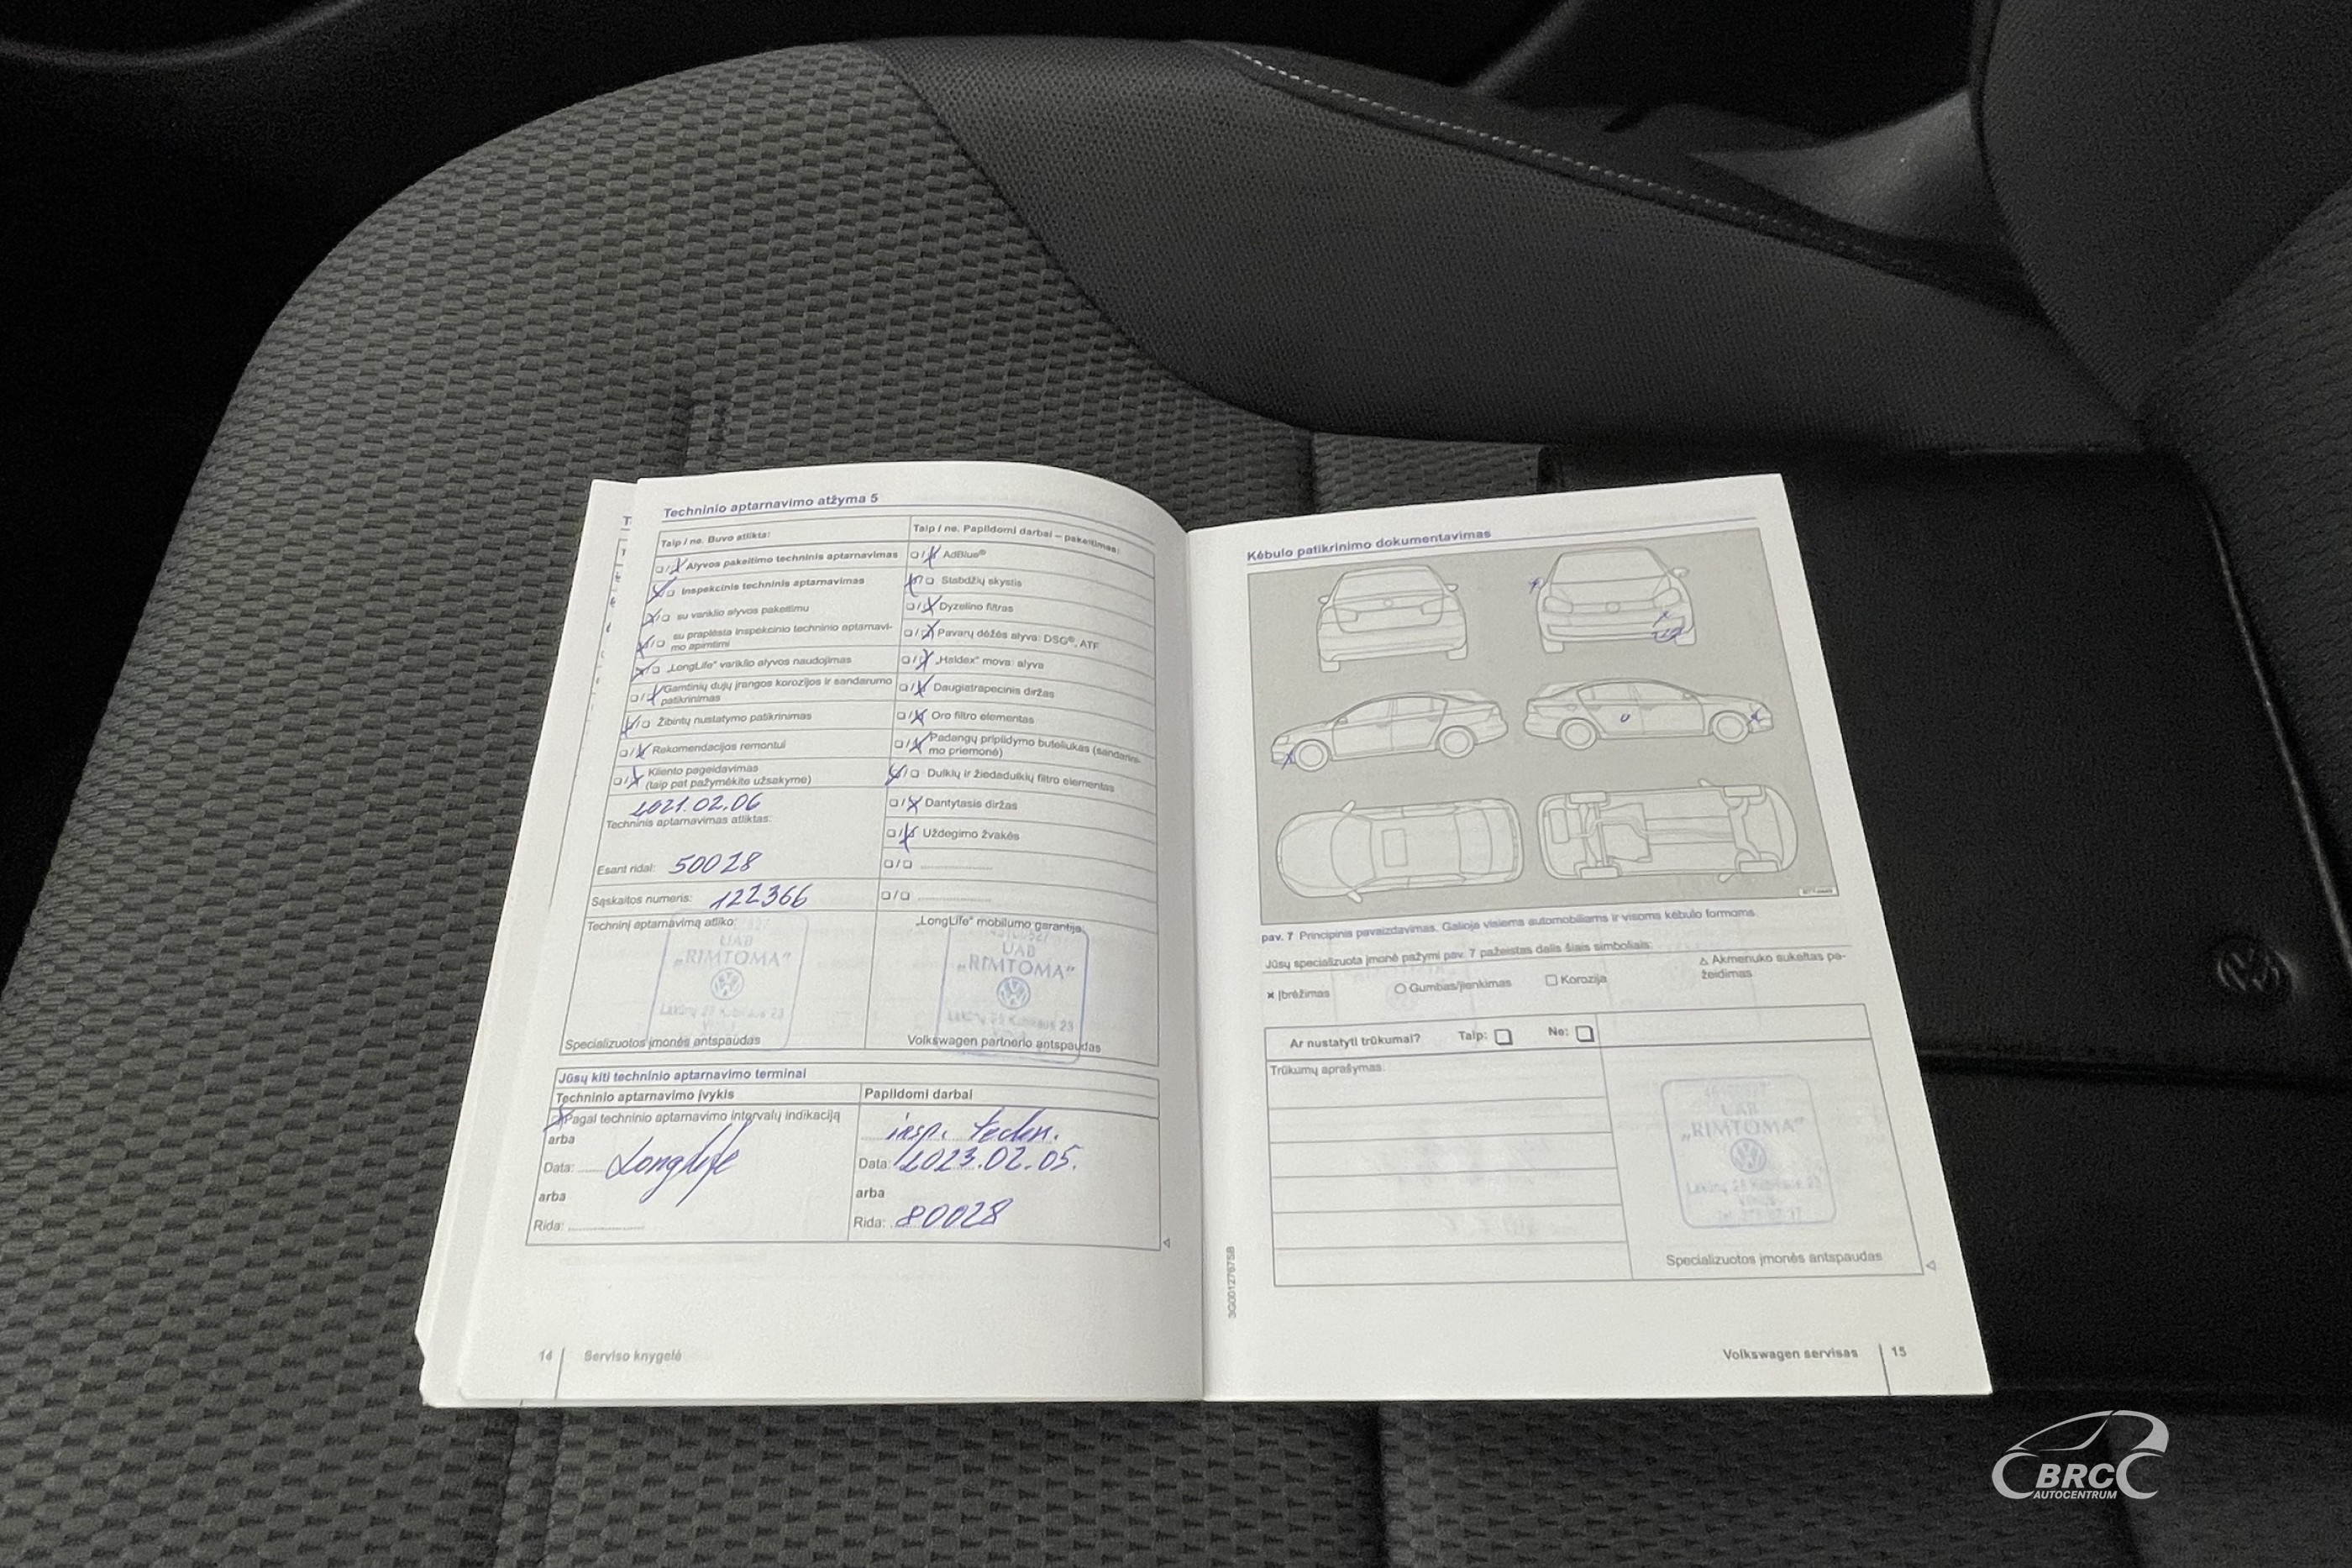 Techninio aptarnavimo atžyma 5
Taip / ne. Buvo atlikta:
Alyvos pakeitimo techninis aptarnavimas
Inspekcinis techninis aptarnavimas
su variklio alyvos pakeitimu
su praplėsta inspekcinio techninio aptarnavi-
mo apimtimi
„LongLife“ variklio alyvos naudojimas
Gamtinių dujų įrangos korozijos ir sandarumo
patikrinimas
Žibintų nustatymo patikrinimas
Rekomendacijos remontui
Kliento pageidavimas
(taip pat pažymėkite užsakyme)
2021.02.06
Techninis aptarnavimas atliktas:
Esant ridai: 50028
Sąskaitos numeris: 122366
Techninį aptarnavimą atliko:
UAB
„RIMTOMA”
Specializuotos įmonės antspaudas
Taip / ne. Papildomi darbai – pakeitimas:
AdBlue®
Stabdžių skystis
Dyzelino filtras
Pavarų dėžės alyva: DSG®, ATF
„Haldex“ mova: alyva
Daugiatrapecinis diržas
Oro filtro elementas
Padangų pripildymo buteliukas (sandarini-
mo priemonė)
Dulkių ir žiedadulkių filtro elementas
Dantytasis diržas
Uždegimo žvakės
„LongLife“ mobilumo garantija:
UAB
„RIMTOMA”
Volkswagen partnerio antspaudas
Jūsų kiti techninio aptarnavimo terminai
Techninio aptarnavimo įvykis
Pagal techninio aptarnavimo intervalų indikaciją
arba
Data: Longlife
arba
Rida:
Papildomi darbai
insp. techn.
Data: 2023.02.05.
arba
Rida: 80028
14 Serviso knygelė
Kėbulo patikrinimo dokumentavimas
pav. 7 Principinis pavaizdavimas. Galioja visiems automobiliams ir visoms kėbulo formoms
Jūsų specializuota įmonė pažymi pav. 7 pažeistas dalis šiais simboliais:
Įbrėžimas
Gumbas/įlenkimas
Korozija
Akmenuko sukeltas pa-
žeidimas
Ar nustatyti trūkumai? Taip: Ne:
Trūkumų aprašymas:
UAB
„RIMTOMA”
Specializuotos įmonės antspaudas
3G0012767SB
Volkswagen servisas 15
BRC
AUTOCENTRUM